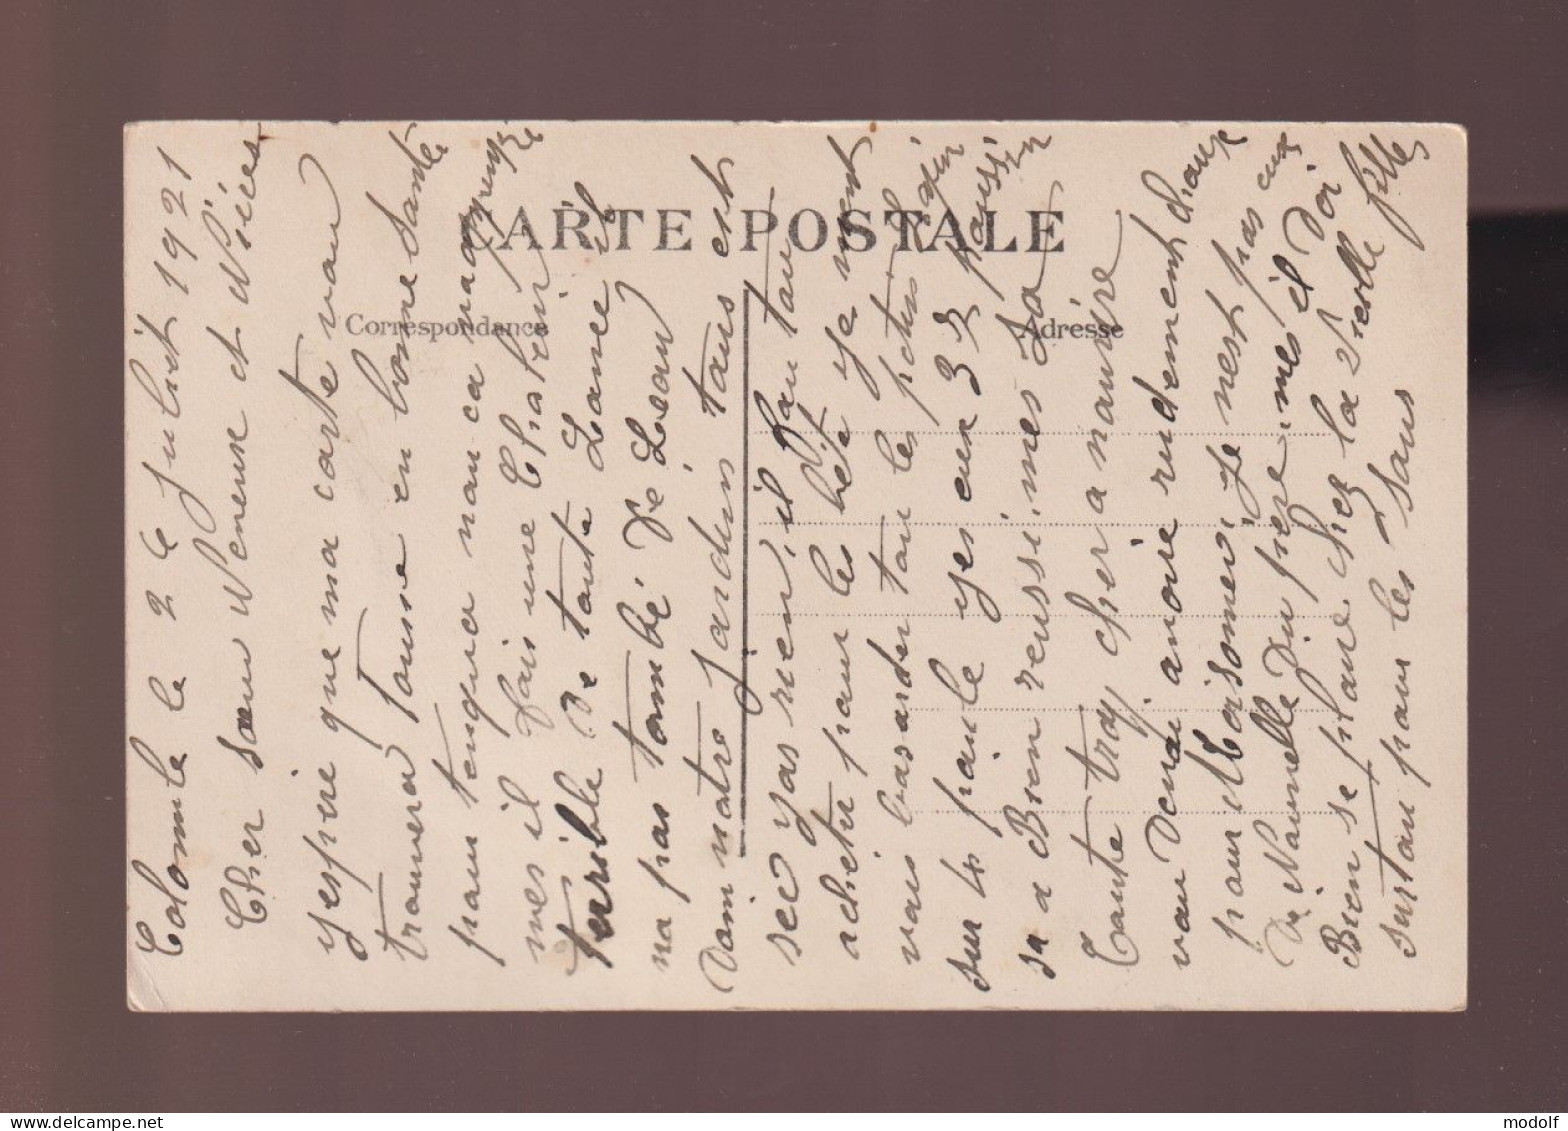 CARTE POSTALE
Correspondance
Adresse
Colombe le 26 Juliet 1921
Cher sœur Neveuse et Nièces
yespère que ma carte vou
trouvera Tousse en bonne Santé
pour tenquea nou ca
mes il fais une Chaleur
terrible De toute Lance il
na pas tombé De Leau
Dam notre Jardin tous est
sec yas rien, il Fau tou
achetu pour les bete ye vient
vous basarder tou les petis lapin
sur 40 paule yes eux 35 pousin
sa a Bien reussi mes sa
Coute troj cher a nourire
vou Devai avoire rudement chaux
pour Moisonei, Je nest pas eux
De Nouvelle Du frère mes il Doi
Bien se plaire Chez la Vieille fille
surtou pour les Sous
modolf